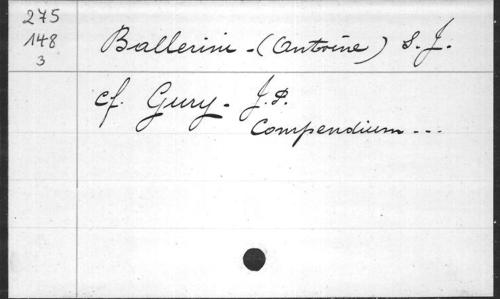 275
148
3
Ballerini - (Antoine) S. J.
cf. Gury - J. P.
Compendium ...